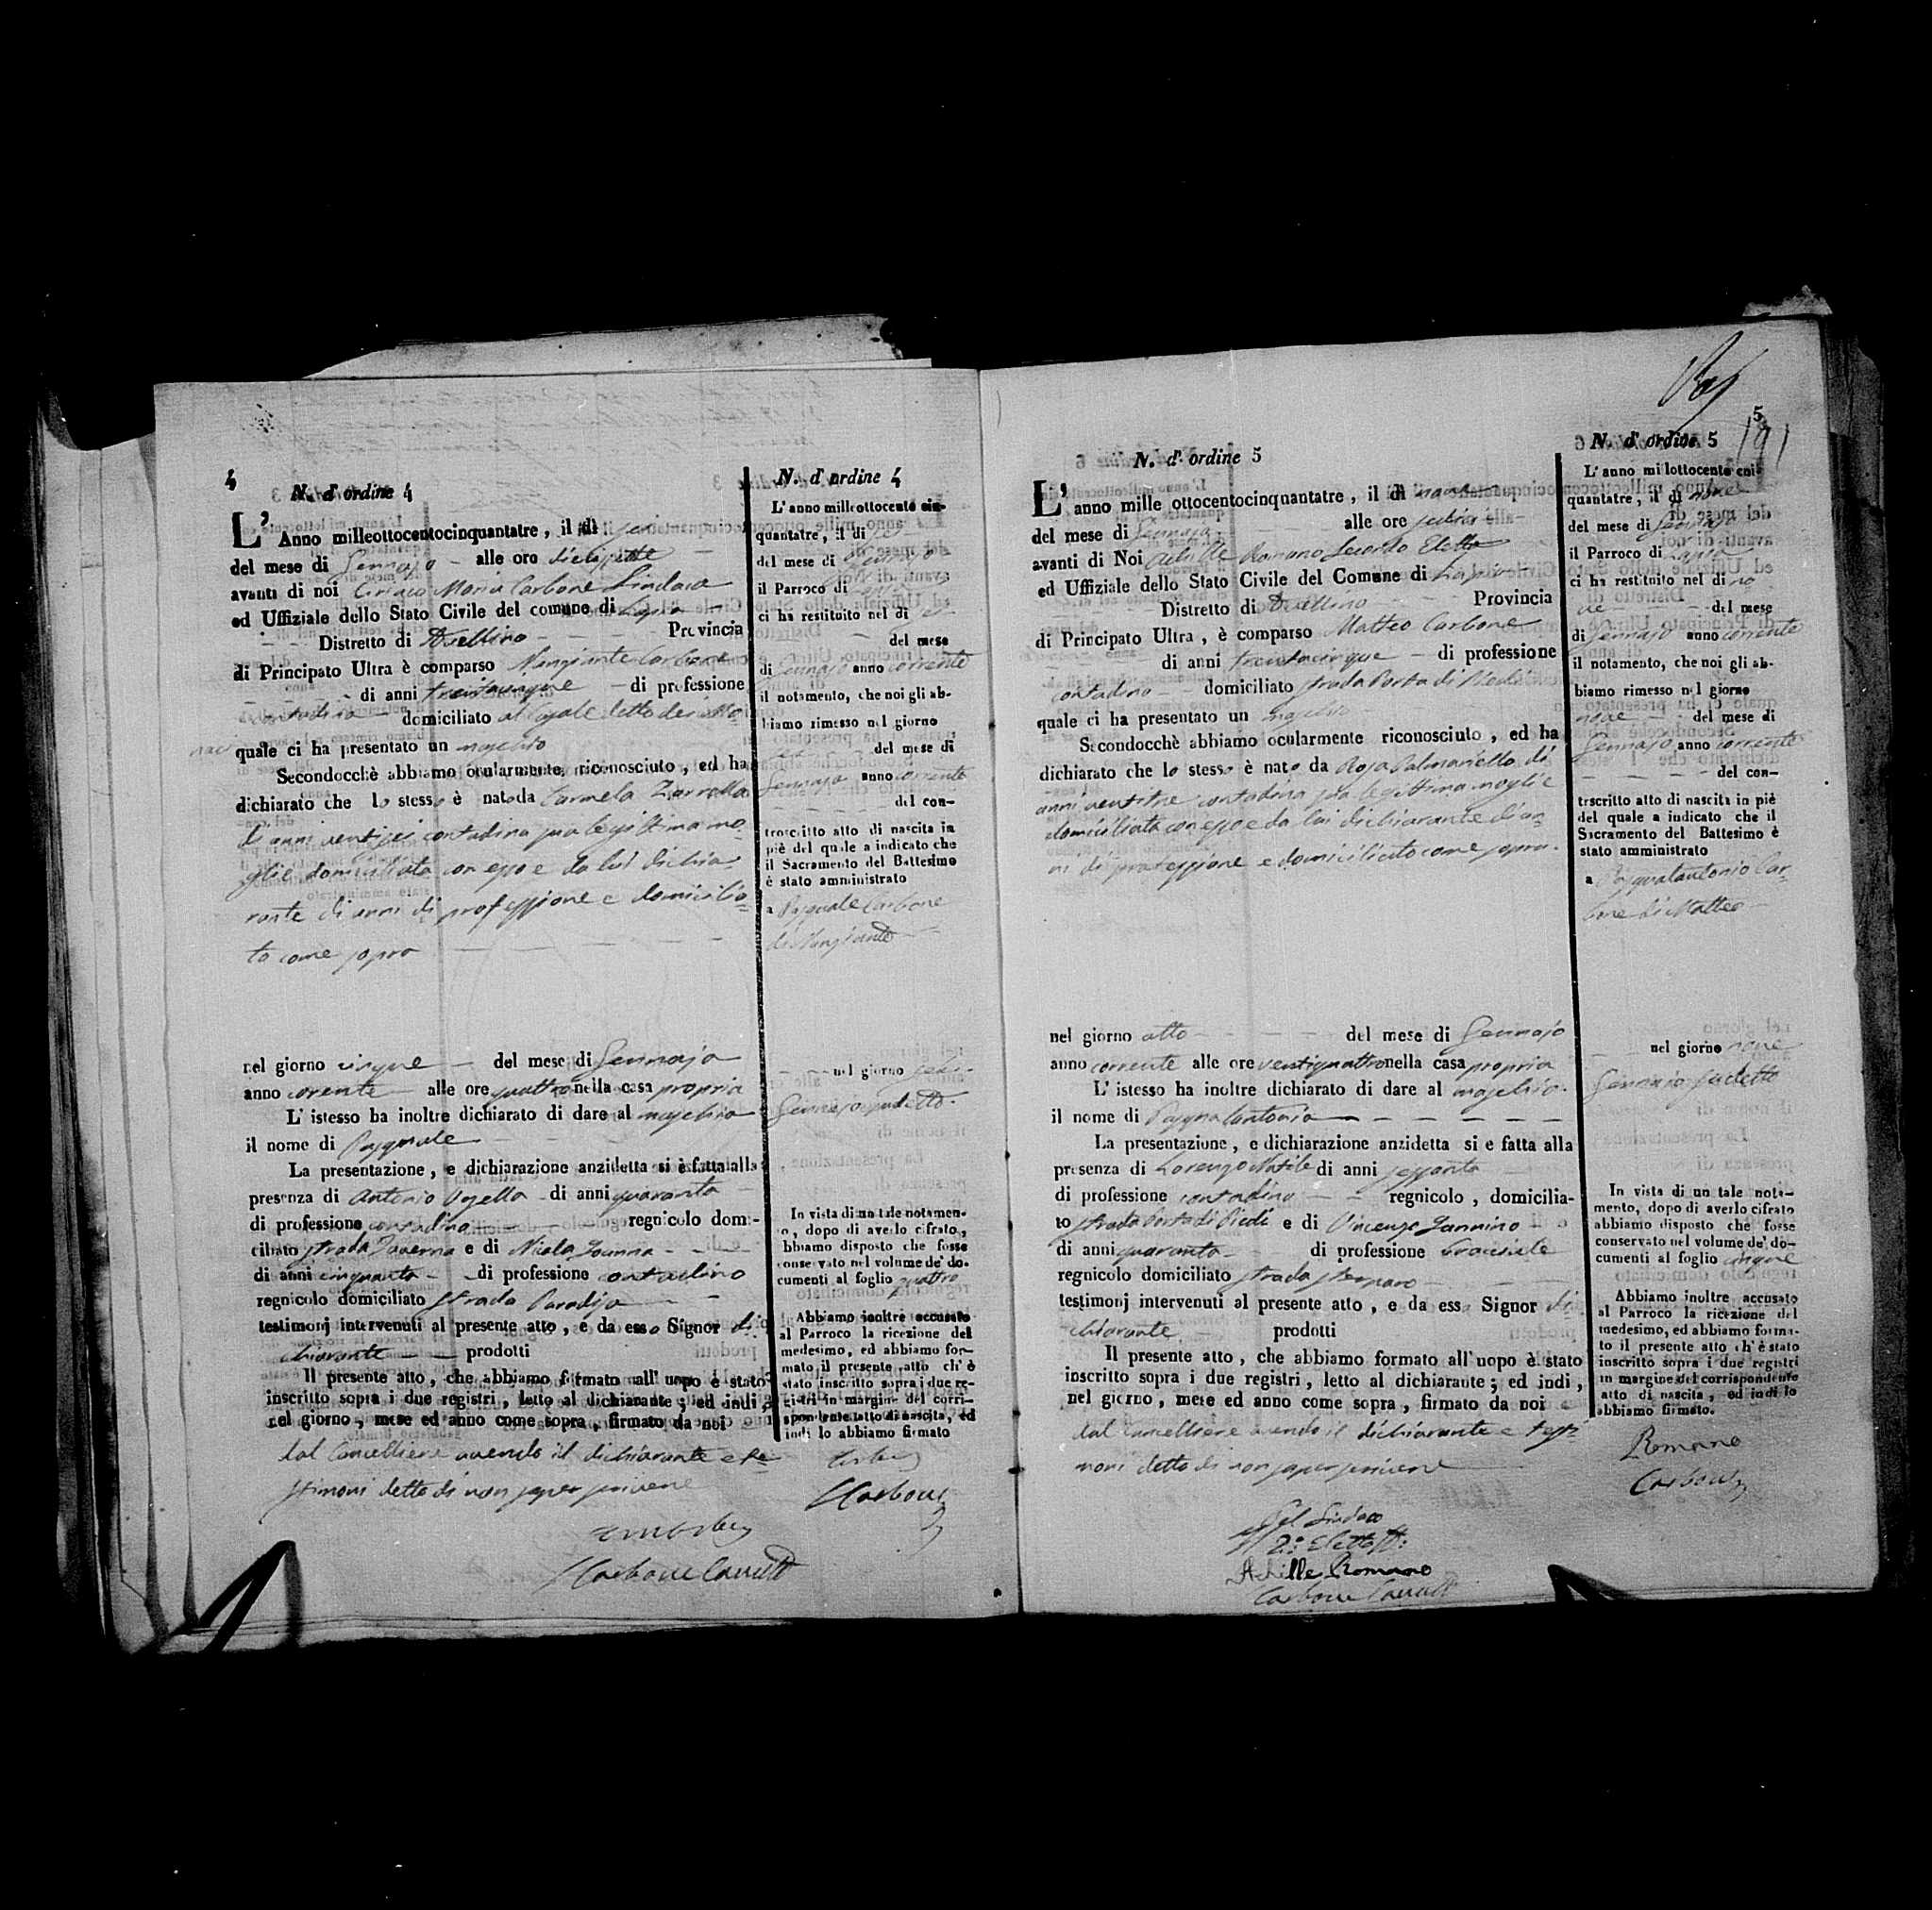 4
N. d' ordine 4
L' Anno milleottocentocinquantatre, il dì sei
del mese di Gennajo alle ore diciassette
avanti di noi Ciriaco Maria Carbone Sindaco
ed Uffiziale dello Stato Civile del comune di Lapio
Distretto di Avellino Provincia
di Principato Ultra è comparso Mangiante Carbone
di anni trentacinque di professione
contadino domiciliato al Casale detto dei
quale ci ha presentato un maschio
Secondocchè abbiamo ocularmente riconosciuto, ed ha
dichiarato che lo stesso è nato da Carmela Zarrella
di anni ventisei contadina sua legittima mo
glie domiciliata con esso e da lui dichia
rante di anni di professione e domicilia
to come sopra
nel giorno cinque del mese di Gennajo
anno corente alle ore quattro nella casa propria
L' istesso ha inoltre dichiarato di dare al maschio
il nome di Pasquale
La presentazione, e dichiarazione anzidetta si è fatta alla
presenza di Antonio di anni quaranta
di professione contadino regnicolo domi-
ciliato strada Taverna e di Nicola Ioanna
di anni cinquanta di professione contadino
regnicolo domiciliato strada Paradiso
testimonj intervenuti al presente atto, e da esso Signor di
chiarante prodotti
Il presente atto, che abbiamo formato all' uopo è stato
inscritto sopra i due registri, letto al dichiarante; ed indi,
nel giorno, mese ed anno come sopra, firmato da noi
dal Cancelliere avendo il dichiarante e te
stimoni detto di non saper scrivere
Carbone
N. d' ordine 4
L' anno milleottocento cin-
quantatre, il dì sei
del mese di Gennajo
il Parroco di
ci ha restituito nel dì
del mese
di Gennajo anno corrente
il notamento, che noi gli ab-
biamo rimesso nel giorno
sei del mese di
Gennajo anno corrente
del con-
troscritto atto di nascita in
piè del quale a indicato che
il Sacramento del Battesimo
è stato amministrato
a Pasquale Carbone
di Mangiante
nel giorno sei
Gennajo sudetto
In vista di un tale notamen-
o, dopo di averlo cifrato,
bbiamo disposto che fosse
conservato nel volume de' do-
cumenti al foglio quattro
Abbiamo inoltre accusato
al Parroco la ricezione del
medesimo, ed abbiamo for-
mato il presente atto ch' è
stato inscritto sopra i due re-
gistri in margine del corri-
spondente atto di nascita, ed
indi lo abbiamo firmato
Carbone
5
191
N. d' ordine 5
L' anno mille ottocentocinquantatre, il dì nove
del mese di Gennajo alle ore sedici
avanti di Noi Achille Romano Secondo Eletto
ed Uffiziale dello Stato Civile del Comune di Lapio
Distretto di Avellino Provincia
di Principato Ultra, è comparso Matteo Carbone
di anni trentacinque di professione
contadino domiciliato strada Porta di Piedi
quale ci ha presentato un maschio
Secondocchè abbiamo ocularmente riconosciuto, ed ha
dichiarato che lo stesso è nato da Rosa Palmariello di
anni ventitre contadina sua legittima moglie
domiciliata con esso e da lui dichiarante di an
ni di professione e domiciliato come sopra
nel giorno otto del mese di Gennajo
anno corrente alle ore ventiquattro nella casa propria
L' istesso ha inoltre dichiarato di dare al maschio
il nome di Pasqualantonio
La presentazione, e dichiarazione anzidetta si e fatta alla
presenza di Lorenzo Natile di anni sessanta
di professione contadino regnicolo, domicilia-
to strada Porta di Piedi e di Vincenzo Iannino
di anni quaranta di professione bracciale
regnicolo domiciliato strada
testimonj intervenuti al presente atto, e da esso Signor di
chiarante prodotti
Il presente atto, che abbiamo formato all'uopo è stato
inscritto sopra i due registri, letto al dichiarante; ed indi,
nel giorno, mese ed anno come sopra, firmato da noi e
dal Cancelliere avendo il dichiarante e testi
moni detto di non saper scrivere
Pel Sindaco
2.° Eletto
Achille Romano
Carbone
N. d' ordine 5
L' anno millottocento cin-
quantatre, il dì nove
del mese di Gennajo
il Parroco di Lapio
ci ha restituito nel dì no
ve del mese
di Gennajo anno corrente
il notamento, che noi gli ab-
biamo rimesso nel giorno
nove del mese di
Gennajo anno corrente
del con-
trscritto atto di nascita in piè
del quale a indicato che il
Sacramento del Battesimo è
stato amministrato
a Pasqualantonio Car
bone di Matteo
nel giorno nove
Gennajo sudetto
In vista di un tale nota-
mento, dopo di averlo cifrato
abbiamo disposto che fosse
conservato nel volume de' do-
cumenti al foglio cinque
Abbiamo inoltre accusato
al Parroco la ricezione del
medesimo, ed abbiamo forma-
to il presente atto ch' è stato
inscritto sopra i due registri
in margine del corrispondente
atto di nascita, ed indi lo
abbiamo firmato.
Romano
Carbone